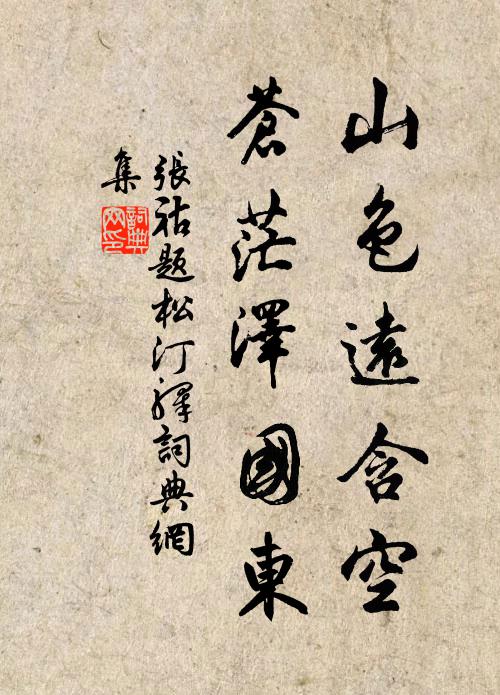 山色遠含空
蒼茫澤國東
張祜題松汀驛詞典網
集
詞典
网印